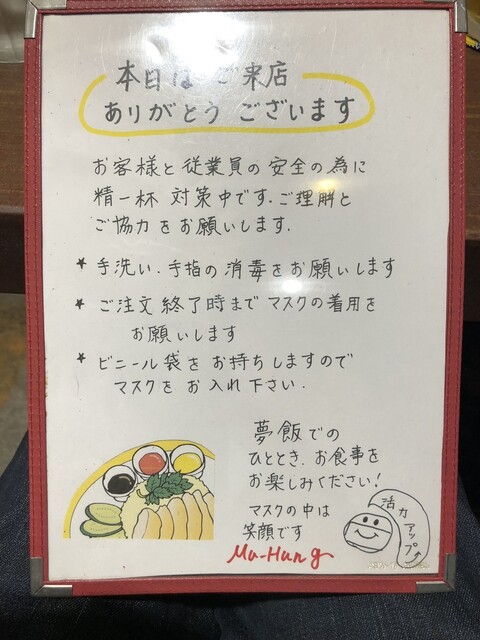 本日は ご来店
ありがとう ございます
お客様と従業員の安全の為に
精一杯 対策中です.ご理解と
ご協力をお願いします.
★ 手洗い.手指の消毒をお願いします
★ ご注文終了時までマスクの着用を
お願いします
★ ビニール袋をお持ちしますので
マスクをお入れ下さい.
夢飯での
ひととき.お食事を
お楽しみください!
マスクの中は
笑顔です
活力アップ
Mu-Hung